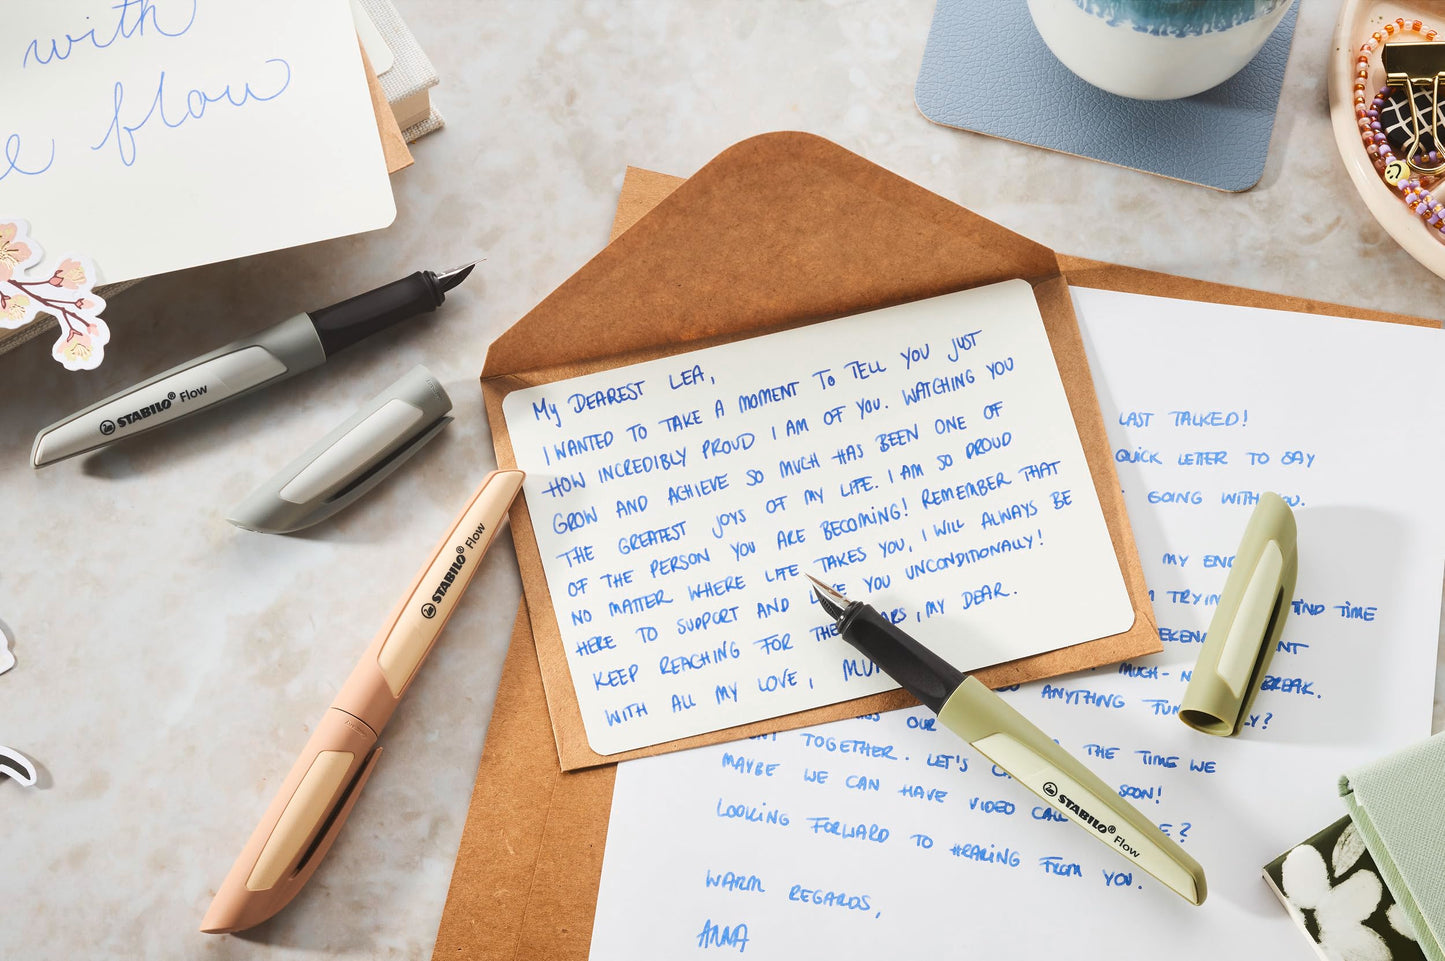 with
e flow
STABILO® Flow
STABILO® Flow
My DEAREST LEA,
I WANTED TO TAKE A MOMENT TO TELL YOU JUST
HOW INCREDIBLY PROUD I AM OF YOU. WATCHING YOU
GROW AND ACHIEVE SO MUCH HAS BEEN ONE OF
THE GREATEST JOYS OF MY LIFE. I AM SO PROUD
OF THE PERSON YOU ARE BECOMING! REMEMBER THAT
NO MATTER WHERE LIFE TAKES YOU, I WILL ALWAYS BE
HERE TO SUPPORT AND YOU UNCONDITIONALLY!
KEEP REACHING FOR THE ARS, MY DEAR.
WITH ALL MY LOVE, MU
LAST TALKED!
QUICK LETTER TO SAY
GOING WITH YOU.
MY EN
TRYIN FIND TIME
EKEN NT
MUCH- N BREAK.
ANYTHING FUN LY?
OUR THE TIME WE
NT TOGETHER. LET'S C SOON!
MAYBE WE CAN HAVE VIDEO CAL E?
LOOKING FORWARD TO HEARING FROM YOU.
WARM REGARDS,
ANNA
STABILO® Flow